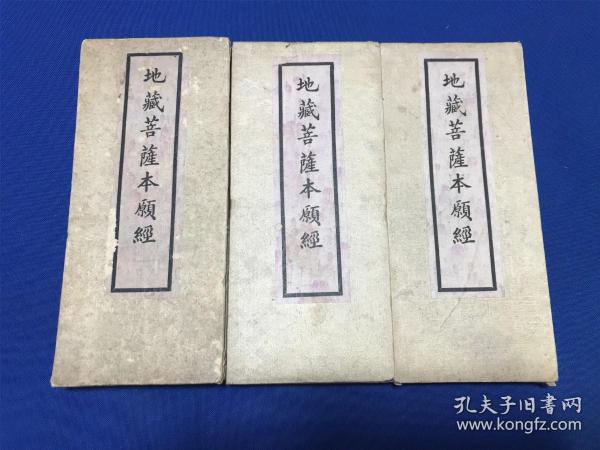 地藏菩薩本願經
地藏菩薩本願經
地藏菩薩本願經
孔夫子旧書网
www.kongfz.com